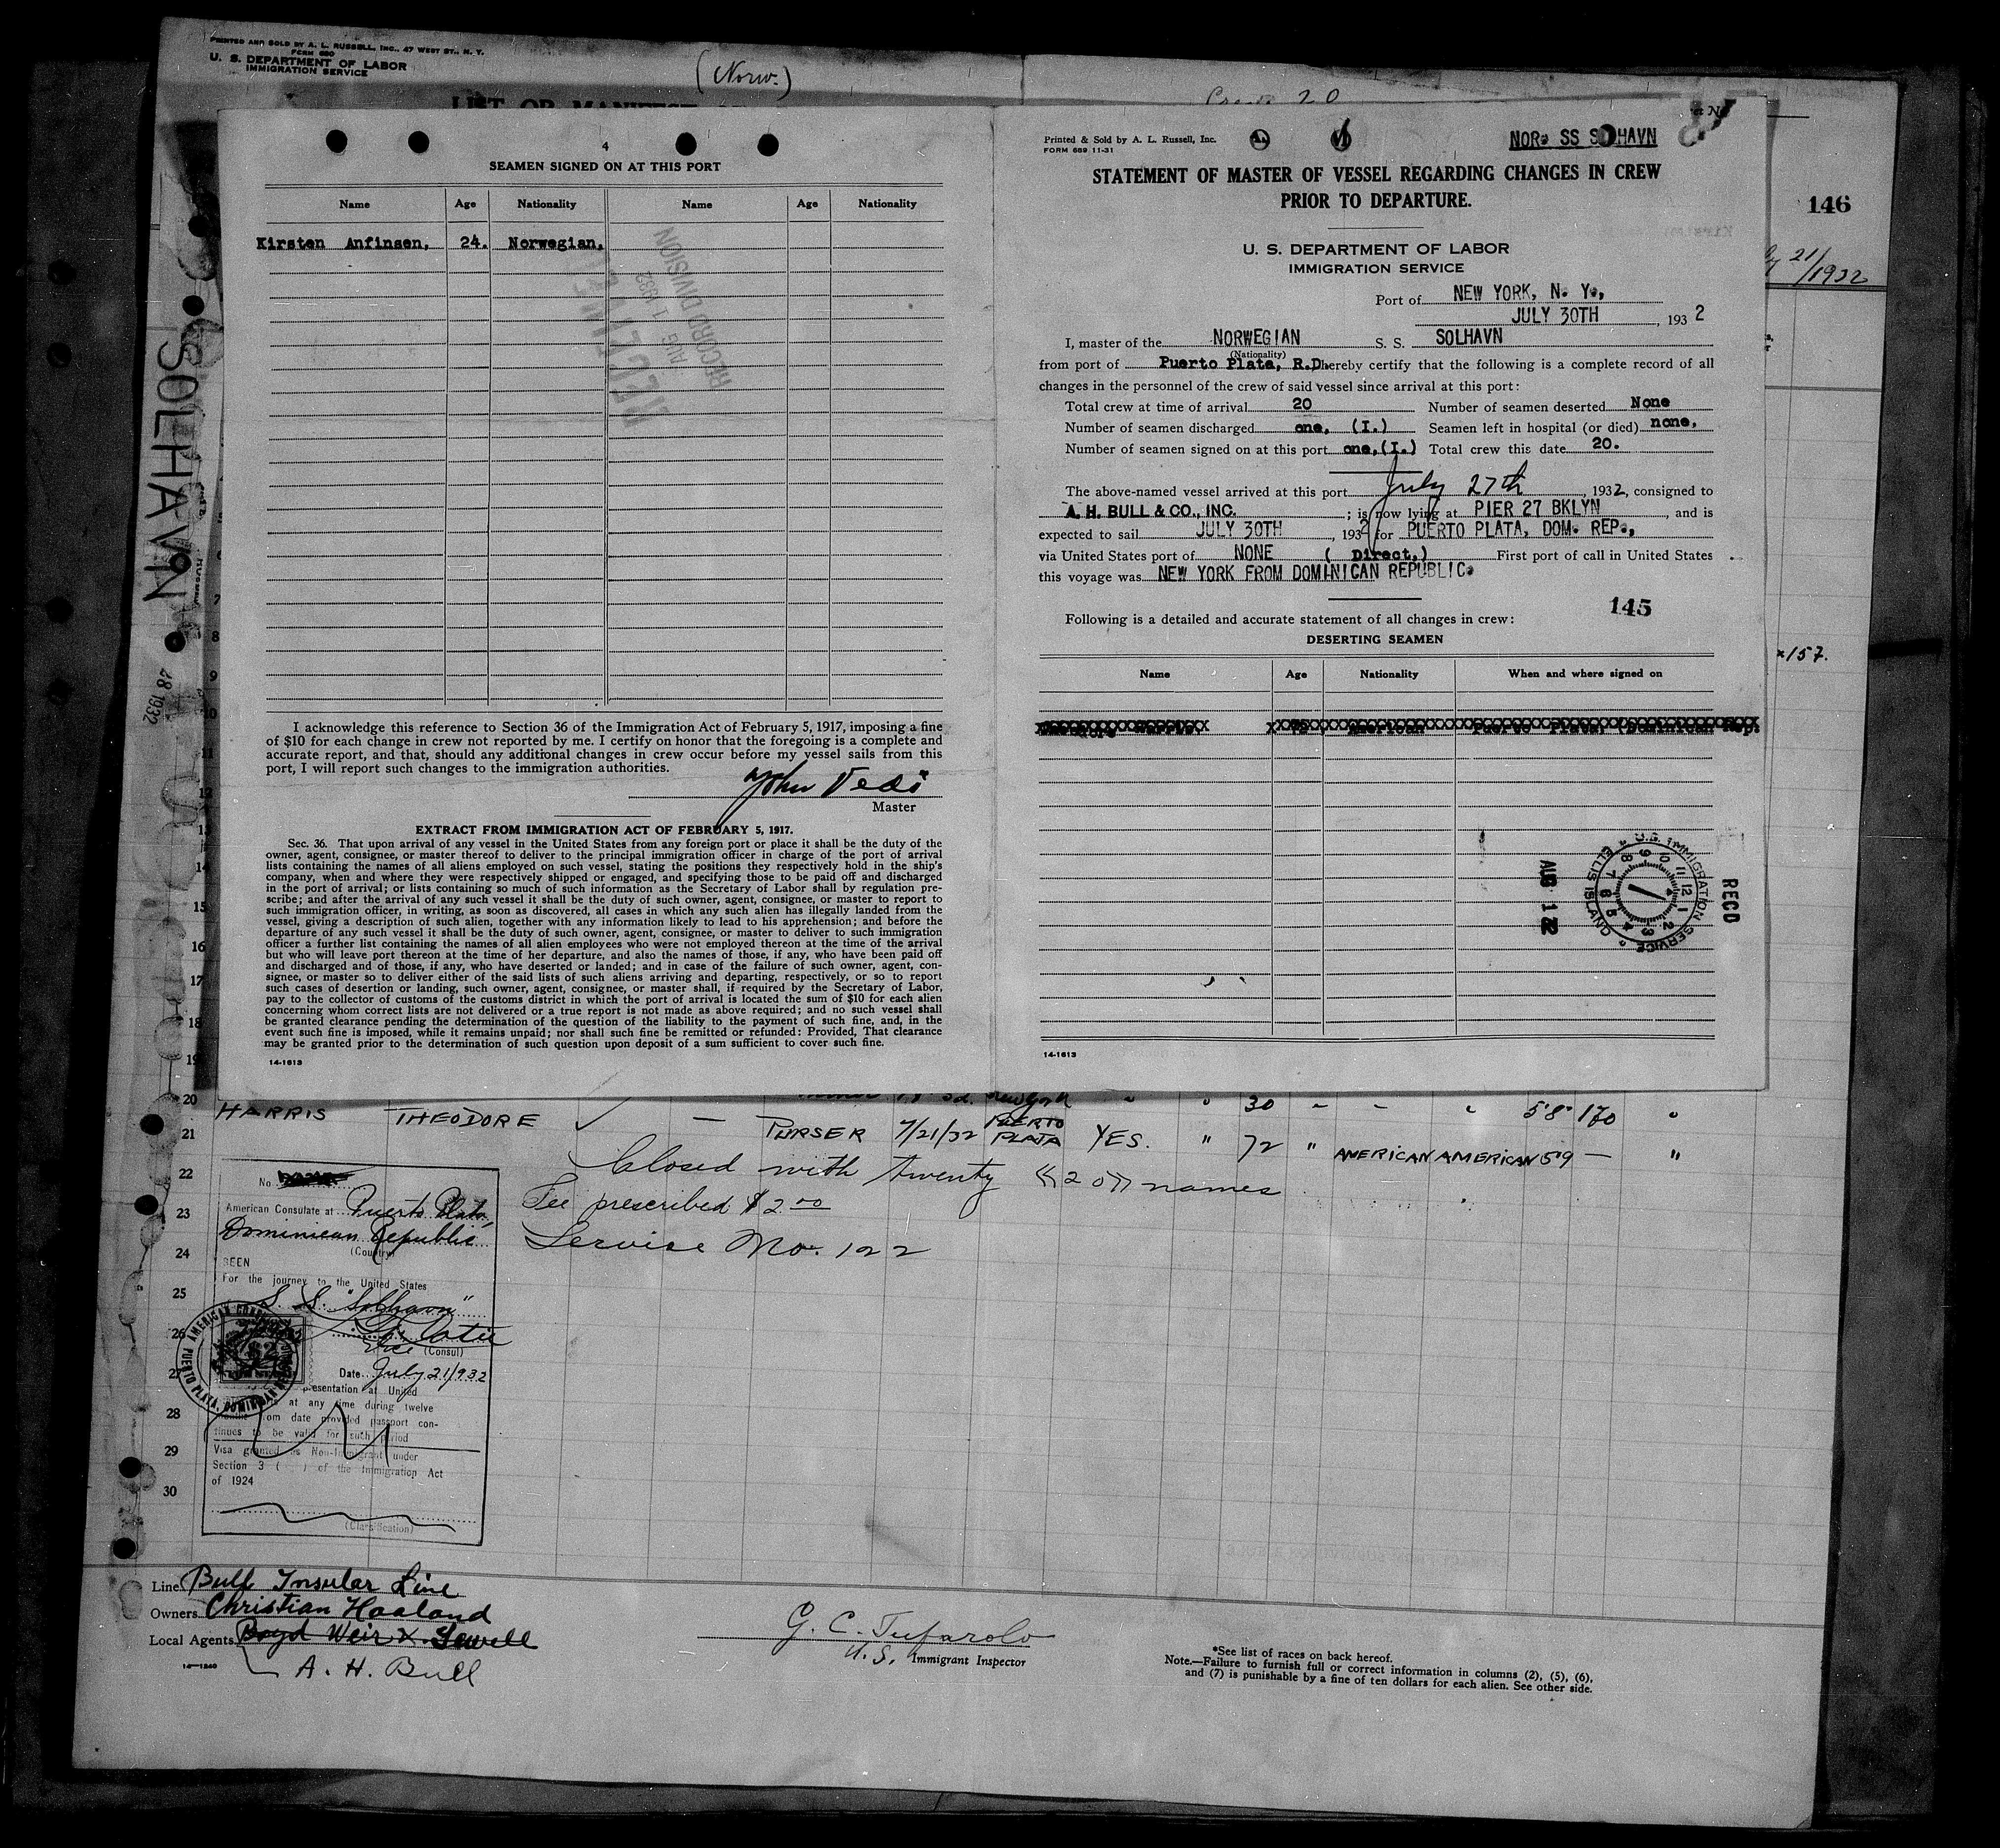 PRINTED AND SOLD BY A. L. RUSSELL, INC., 47 WEST ST., N. Y.
FORM 680
U. S. DEPARTMENT OF LABOR
IMMIGRATION SERVICE
(Norw.)
LIST OR MANIFEST
20
146
21/1932
×157.
SOLHAVN
28 1932
4
SEAMEN SIGNED ON AT THIS PORT
Name Age Nationality Name Age Nationality
Kirsten Anfinsen, 24. Norwegian,
RECEIVED
AUG 1 1932
RECORD DIVISION
I acknowledge this reference to Section 36 of the Immigration Act of February 5, 1917, imposing a fine
of $10 for each change in crew not reported by me. I certify on honor that the foregoing is a complete and
accurate report, and that, should any additional changes in crew occur before my vessel sails from this
port, I will report such changes to the immigration authorities.
John Vedi
Master
EXTRACT FROM IMMIGRATION ACT OF FEBRUARY 5, 1917.
Sec. 36. That upon arrival of any vessel in the United States from any foreign port or place it shall be the duty of the
owner, agent, consignee, or master thereof to deliver to the principal immigration officer in charge of the port of arrival
lists containing the names of all aliens employed on such vessel, stating the positions they respectively hold in the ship's
company, when and where they were respectively shipped or engaged, and specifying those to be paid off and discharged
in the port of arrival; or lists containing so much of such information as the Secretary of Labor shall by regulation pre-
scribe; and after the arrival of any such vessel it shall be the duty of such owner, agent, consignee, or master to report to
such immigration officer, in writing, as soon as discovered, all cases in which any such alien has illegally landed from the
vessel, giving a description of such alien, together with any information likely to lead to his apprehension; and before the
departure of any such vessel it shall be the duty of such owner, agent, consignee, or master to deliver to such immigration
officer a further list containing the names of all alien employees who were not employed thereon at the time of the arrival
but who will leave port thereon at the time of her departure, and also the names of those, if any, who have been paid off
and discharged and of those, if any, who have deserted or landed; and in case of the failure of such owner, agent, con-
signee, or master so to deliver either of the said lists of such aliens arriving and departing, respectively, or so to report
such cases of desertion or landing, such owner, agent, consignee, or master shall, if required by the Secretary of Labor,
pay to the collector of customs of the customs district in which the port of arrival is located the sum of $10 for each alien
concerning whom correct lists are not delivered or a true report is not made as above required; and no such vessel shall
be granted clearance pending the determination of the question of the liability to the payment of such fine, and, in the
event such fine is imposed, while it remains unpaid; nor shall such fine be remitted or refunded: Provided, That clearance
may be granted prior to the determination of such question upon deposit of a sum sufficient to cover such fine.
14-1613
Printed & Sold by A. L. Russell, Inc.
FORM 689 11-31
NOR. SS SOLHAVN
STATEMENT OF MASTER OF VESSEL REGARDING CHANGES IN CREW
PRIOR TO DEPARTURE.
U. S. DEPARTMENT OF LABOR
IMMIGRATION SERVICE
Port of NEW YORK, N. Y.,
JULY 30TH, 1932
I, master of the NORWEGIAN S. S. SOLHAVN
(Nationality)
from port of Puerto Plata, R.D. hereby certify that the following is a complete record of all
changes in the personnel of the crew of said vessel since arrival at this port:
Total crew at time of arrival 20 Number of seamen deserted None
Number of seamen discharged one, (I.) Seamen left in hospital (or died) none,
Number of seamen signed on at this port one,(I.) Total crew this date 20.
The above-named vessel arrived at this port July 27th, 1932, consigned to
A. H. BULL & CO., INC.; is now lying at PIER 27 BKLYN, and is
expected to sail JULY 30TH, 1932 for PUERTO PLATA, DOM. REP.,
via United States port of NONE (Direct,) First port of call in United States
this voyage was NEW YORK FROM DOMINICAN REPUBLIC.
145
Following is a detailed and accurate statement of all changes in crew:
DESERTING SEAMEN
Name Age Nationality When and where signed on
American Puerto Plata, (Dominican Rep.
U.S. IMMIGRATION SERVICE ELLIS ISLAND
RECD
AUG 1 32
14-1613
7
8
9
10
11
12
13
14
15
16
17
18
19
20 New York " " 30 - - " 5'8" 170 "
21 HARRIS THEODORE ✓ — PURSER 7/21/32 PUERTO PLATA YES. " 72 " AMERICAN AMERICAN 5'9 — "
22 Closed with twenty ((20)) names
23 Fee prescribed $2.00
24 Service No. 122
25
26
27
28
29
30
No
American Consulate at Puerto Plata,
Dominican Republic
(Country)
SEEN
For the journey to the United States
S. S. "Solhavn"
Vice (Consul)
Date July 21/932
presentation at United
at any time during twelve
from date provided passport con-
tinues to be valid for such period
Visa granted as Non-Immigrant under
Section 3 ( ) of the Immigration Act
of 1924
(Classification)
AMERICAN PUERTO PLATA, DOMINICAN
$2
Line Bull Insular Line
Owners Christian Haaland
Local Agents Boyd Weir & Sewell
A. H. Bull
14-1240
G. C. Tufarolo
U.S. Immigrant Inspector
*See list of races on back hereof.
Note.—Failure to furnish full or correct information in columns (2), (5), (6),
and (7) is punishable by a fine of ten dollars for each alien. See other side.